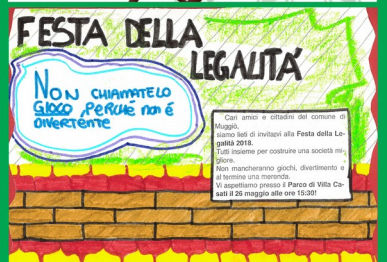 FESTA DELLA
LEGALITÀ
NON CHIAMATELO
GIOCO, PERCHÉ non é
DIVERTENTE
Cari amici e cittadini del comune di
Muggiò,
siamo lieti di invitarvi alla Festa della Le-
galità 2018.
Tutti insieme per costruire una società mi-
gliore.
Non mancheranno giochi, divertimento e
al termine una merenda.
Vi aspettiamo presso il Parco di Villa Ca-
sati il 26 maggio alle ore 15:30!